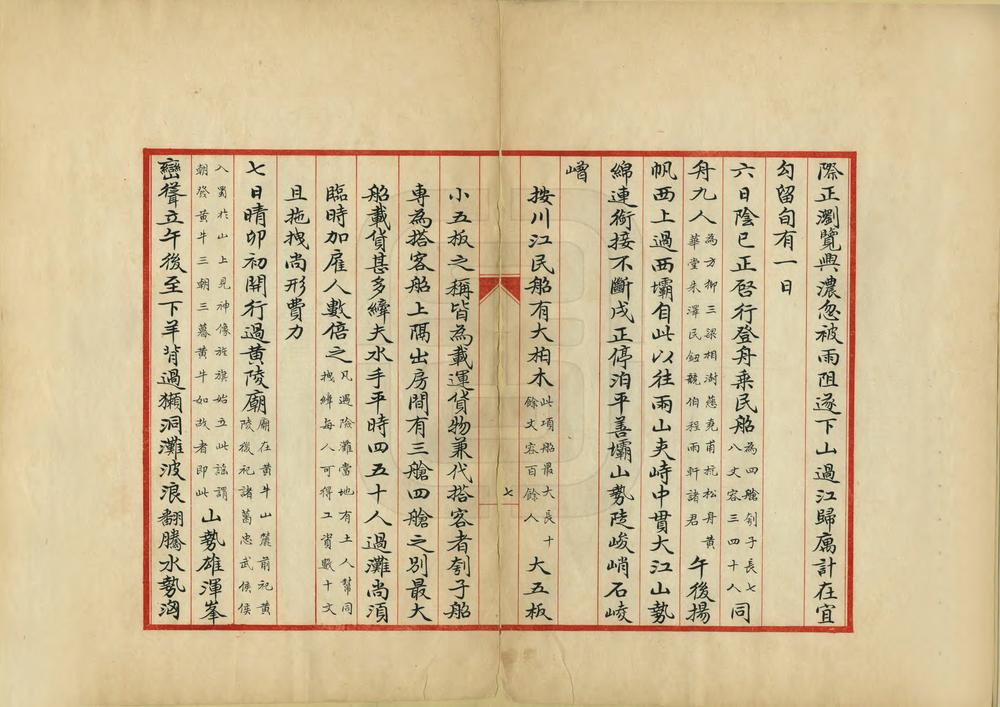 際正瀏覽興濃忽被雨阻遂下山過江歸寓計在宜
勾留旬有一日
六日陰巳正啓行登舟乘民船為四艙刳子長七八丈容三四十人同
舟九人為方柳三梁相澍慈堯甫抗松舟黄華堂朱澤民鈕競伯程雨軒諸君午後揚
帆西上過西壩自此以往兩山夹峙中貫大江山勢
綿連銜接不斷戌正停泊平善壩山勢陡峻峭石崚
嶒
按川江民船有大柏木此項船最大長十餘丈容百餘人大五板
七
小五板之稱皆為載運貨物兼代搭客者刳子船
專為搭客船上隔出房間有三艙四艙之别最大
船載貨甚多縴夫水手平時四五十人過灘尚須
臨時加雇人數倍之凡遇險灘當地有土人幫同拽縴每人可得工資數十文
且拖拽尚形費力
七日晴卯初開行過黄陵廟廟在黄牛山麓前祀黄陵後祀諸葛忠武侯侯
入蜀於山上見神像旌旗始立此謡謂朝發黄牛三朝三暮黄牛如故者即此山勢雄渾峯
巒聳立午後至下羊背過獺洞灘波浪翻騰水勢洶